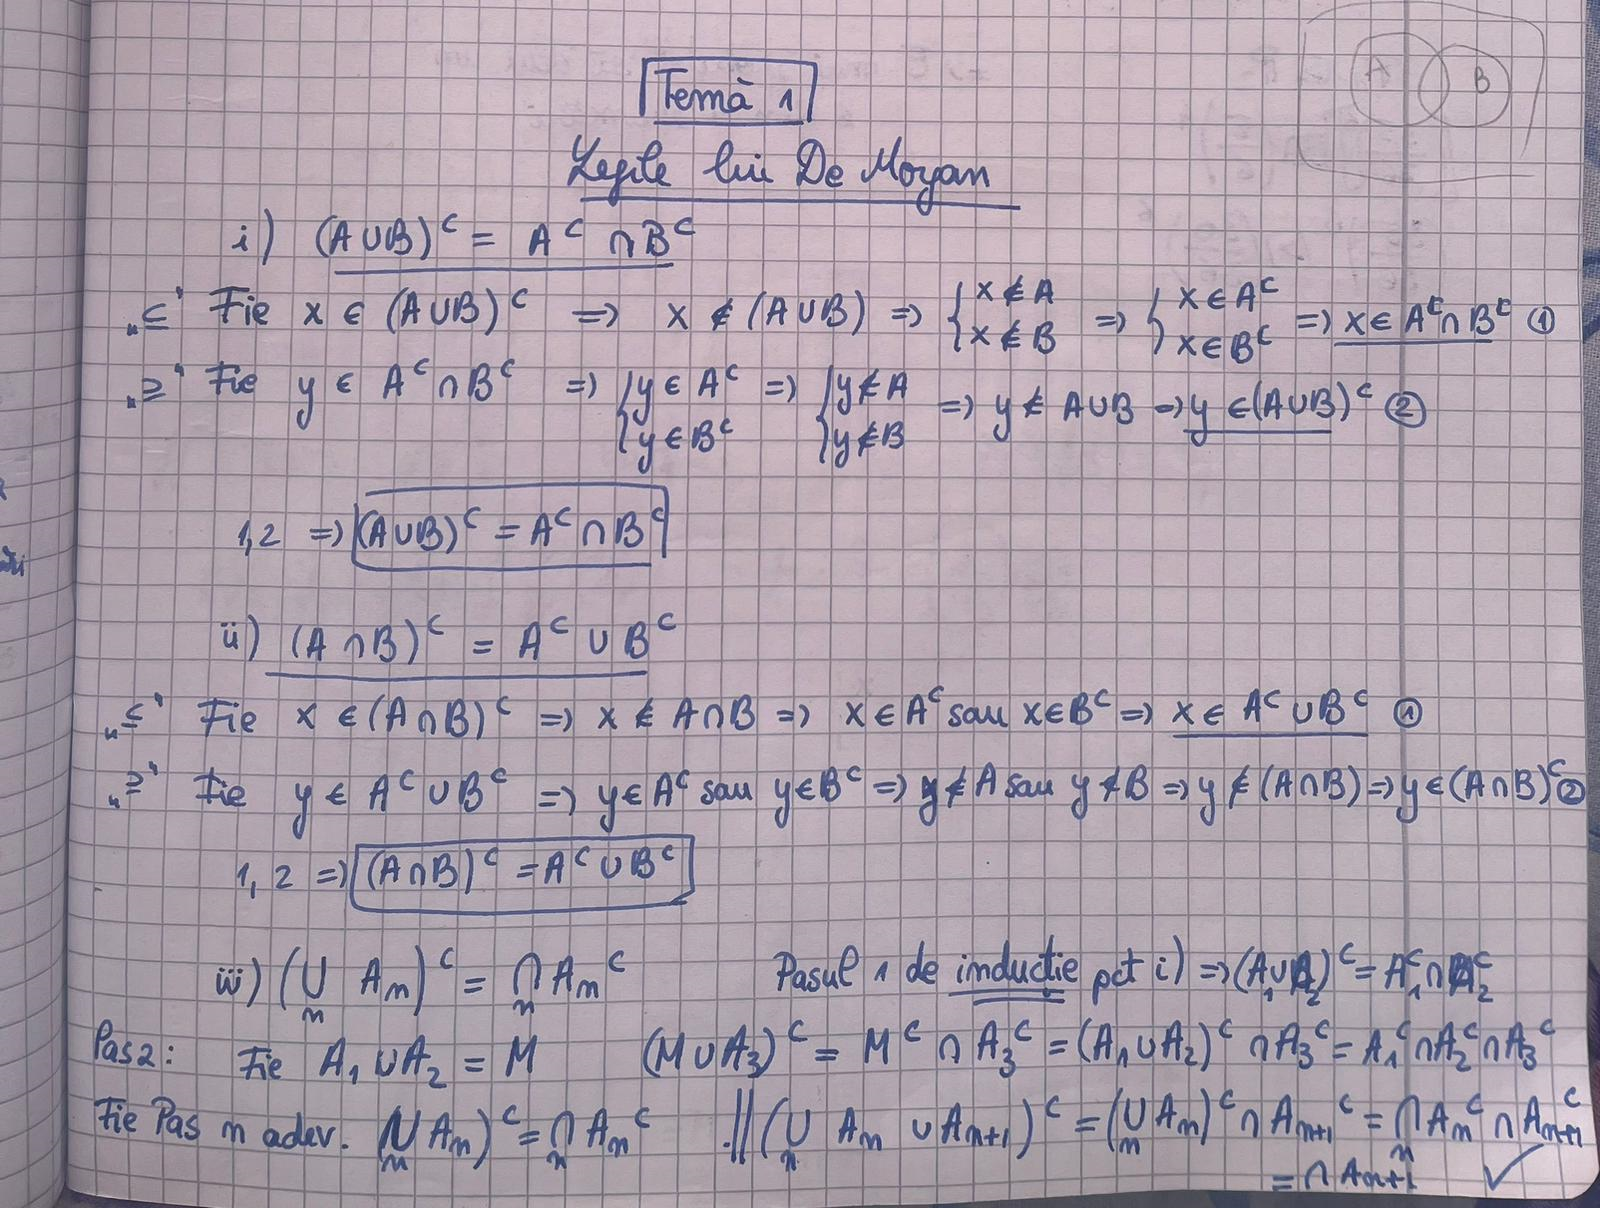 A B
Temă 1
Legile lui De Moyan
i) (A∪B)ᶜ = Aᶜ ∩ Bᶜ
„⊆" Fie x ∈ (A∪B)ᶜ => x ∉ (A∪B) => { x ∉ A x ∉ B => { x ∈ Aᶜ x ∈ Bᶜ => x ∈ Aᶜ ∩ Bᶜ ①
„⊇" Fie y ∈ Aᶜ ∩ Bᶜ => { y ∈ Aᶜ y ∈ Bᶜ => { y ∉ A y ∉ B => y ∉ A∪B => y ∈ (A∪B)ᶜ ②
1,2 => (A∪B)ᶜ = Aᶜ ∩ Bᶜ
ii) (A ∩ B)ᶜ = Aᶜ ∪ Bᶜ
„⊆" Fie x ∈ (A∩B)ᶜ => x ∉ A∩B => x ∈ Aᶜ sau x ∈ Bᶜ => x ∈ Aᶜ ∪ Bᶜ ①
„⊇" Fie y ∈ Aᶜ ∪ Bᶜ => y ∈ Aᶜ sau y ∈ Bᶜ => y ∉ A sau y ∉ B => y ∉ (A∩B) => y ∈ (A∩B)ᶜ ②
1, 2 => (A∩B)ᶜ = Aᶜ ∪ Bᶜ
iii) (∪ₙ Aₙ)ᶜ = ∩ₙ Aₙᶜ Pasul 1 de inducție pct i) => (A₁∪A₂)ᶜ = A₁ᶜ ∩ A₂ᶜ
Pas 2: Fie A₁ ∪ A₂ = M (M∪A₃)ᶜ = Mᶜ ∩ A₃ᶜ = (A₁∪A₂)ᶜ ∩ A₃ᶜ = A₁ᶜ ∩ A₂ᶜ ∩ A₃ᶜ
Fie Pas n adev. (∪ₙ Aₙ)ᶜ = ∩ₙ Aₙᶜ .|| (∪ₙ Aₙ ∪ Aₙ₊₁)ᶜ = (∪ₙ Aₙ)ᶜ ∩ Aₙ₊₁ᶜ = ∩ₙ Aₙᶜ ∩ Aₙ₊₁ᶜ
= ∩ Aₙ₊₁ ✓